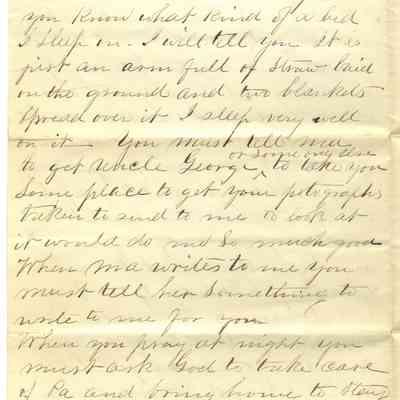 you know what kind of a bed
I sleep in. I will tell you it is
just an arm full of straw laid
on the ground and two blankets
spread over it I sleep very well
on it You must tell ma
or some one else
to get Uncle George ^ to take you
some place to get your potographs
taken to send to me to look at
it would do me so much good
When ma writes to me you
must tell her something to
write to me for you
When you pray at night you
must ask God to take care
of Pa and bring home to stay